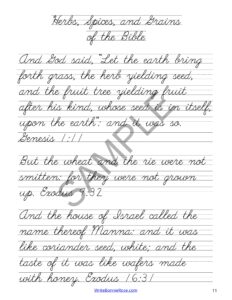 Herbs, Spices, and Grains
of the Bible
And God said, "Let the earth bring
forth grass, the herb yielding seed,
and the fruit tree yielding fruit
after his kind, whose seed is in itself,
upon the earth": and it was so.
Genesis 1:11
But the wheat and the rie were not
smitten: for they were not grown
up. Exodus 9:32
And the house of Israel called the
name thereof Manna: and it was
like coriander seed, white; and the
taste of it was like wafers made
with honey. Exodus 16:31
SAMPLE
WriteBonnieRose.com
11